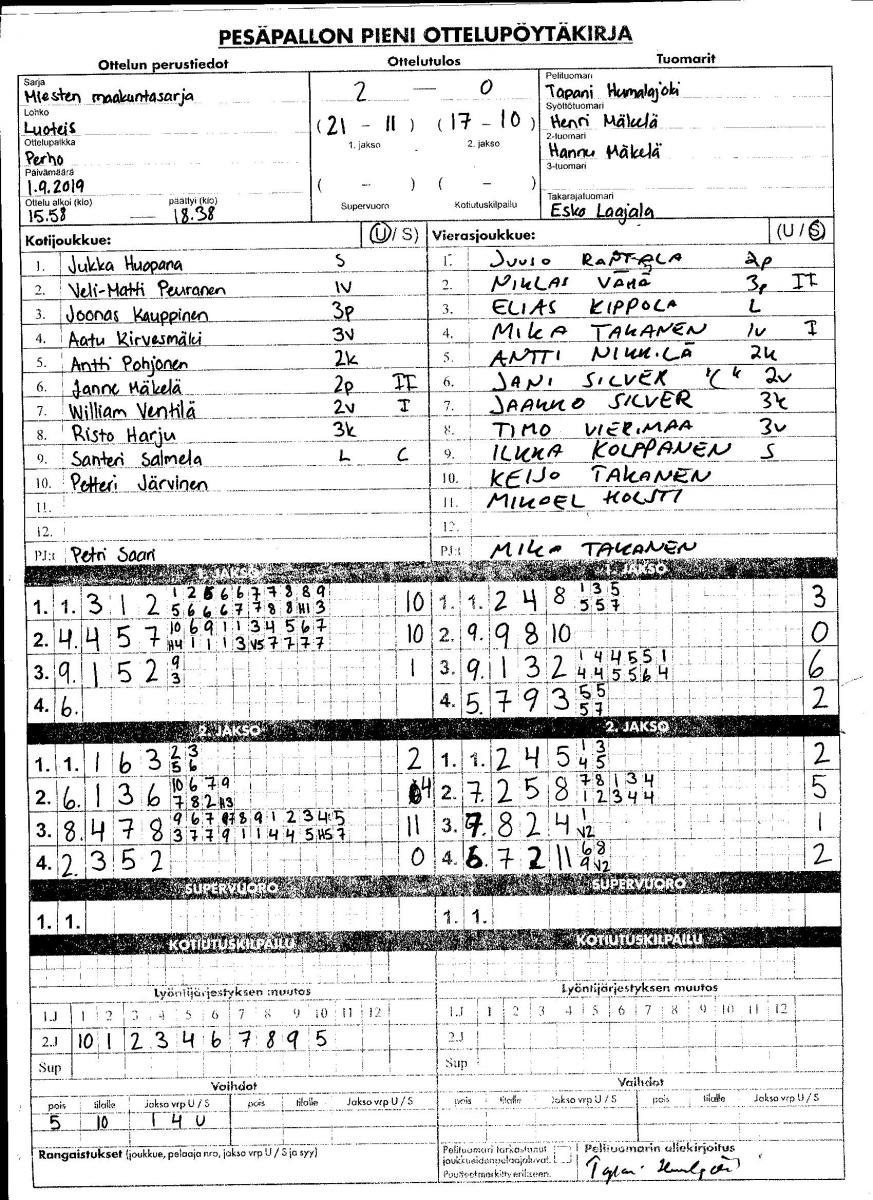 PESÄPALLON PIENI OTTELUPÖYTÄKIRJA
Ottelun perustiedot Ottelutulos Tuomarit
Sarja
Miesten maakuntasarja
Lohko
Luoteis
Ottelupaikka
Perho
Päivämäärä
1.9.2019
Ottelu alkoi (klo) päättyi (klo)
15.58 — 18.38
2 — 0
(21 - 11) (17 - 10)
1. jakso 2. jakso
( - ) ( - )
Supervuoro Kotiutuskilpailu
Pelituomari
Tapani Humalajoki
Syöttötuomari
Henri Mäkelä
2-tuomari
Hannu Mäkelä
3-tuomari
Takarajatuomari
Esko Laajala
Kotijoukkue: (U / S)
1. Jukka Huopana S
2. Veli-Matti Peuranen 1V
3. Joonas Kauppinen 3p
4. Aatu Kirvesmäki 3v
5. Antti Pohjonen 2k
6. Janne Mäkelä 2p II
7. William Ventilä 2v I
8. Risto Harju 3k
9. Santeri Salmela L C
10. Petteri Järvinen
11.
12.
PJ:t Petri Saari
Vierasjoukkue: (U / S)
1. JUUSO RAPTALA 2p
2. NIKLAS VÄHÄ 3p II
3. ELIAS KIPPOLA L
4. MIKA TAKANEN 1v I
5. ANTTI NIKKILÄ 2k
6. JANI SILVER "C" 2v
7. JAAKKO SILVER 3k
8. TIMO VIERIMAA 3v
9. ILKKA KOLPPANEN S
10. KEIJO TAKANEN
11. MIKAEL HOLSTI
12.
PJ:t MIKA TAKANEN
1. JAKSO
1. 1. 3 1 2 1 2 5 6 6 7 7 8 8 9 10
5 6 6 6 7 7 8 8 H1 3
2. 4. 4 5 7 10 6 9 1 1 3 4 5 6 7 10
H4 1 1 1 3 V5 7 7 7 7
3. 9. 1 5 2 9 1
3
4. 6.
1. JAKSO
1. 1. 2 4 8 1 3 5 3
5 5 7
2. 9. 9 8 10 0
3. 9. 1 3 2 1 4 4 5 5 1 6
4 4 5 5 6 4
4. 5. 7 9 3 5 5 2
5 7
2. JAKSO
1. 1. 1 6 3 2 3 2
5 6
2. 6. 1 3 6 10 6 7 9 4
7 8 2 H3
3. 8. 4 7 8 11
4. 2. 3 5 2 0
2. JAKSO
1. 1. 2 4 5 1 3 2
4 5
2. 7. 2 5 8 7 8 1 3 4 5
1 2 3 4 4
3. 7. 8 2 4 1 1
V2
4. 6. 7 2 11 6 8 2
9 V2
SUPERVUORO
1. 1.
SUPERVUORO
1. 1.
KOTIUTUSKILPAILU
KOTIUTUSKILPAILU
Lyöntijärjestyksen muutos
1.J 1 2 3 4 5 6 7 8 9 10 11 12
2.J 10 1 2 3 4 6 7 8 9 5
Sup
Lyöntijärjestyksen muutos
1.J 1 2 3 4 5 6 7 8 9 10 11 12
2.J
Sup
Vaihdot
pois tilalle Jakso vrp U / S pois tilalle Jakso vrp U / S
5 10 1 4 U
Vaihdot
pois tilalle Jakso vrp U / S pois tilalle Jakso vrp U / S
Rangaistukset (joukkue, pelaaja nro, jakso vrp U / S ja syy)
Pelituomari tarkastanut
joukkueidenpelaajaluvat.
Puutteet merkitty erikseen.
Pelituomarin allekirjoitus